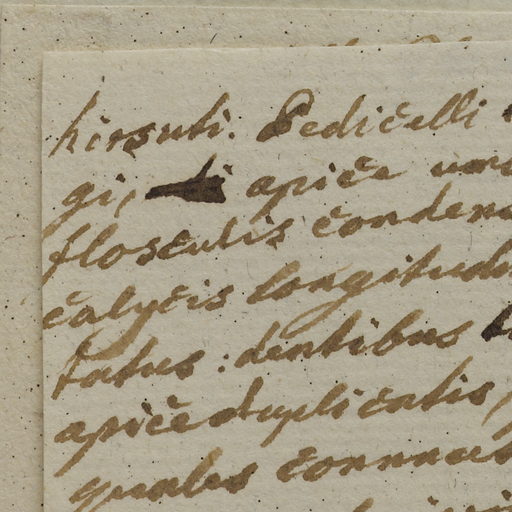 hirsuti. Pedicelli
gi, apice um
flosculis conden
calycis longitud
tatus: dentibus
apice duplicatis,
quales connau